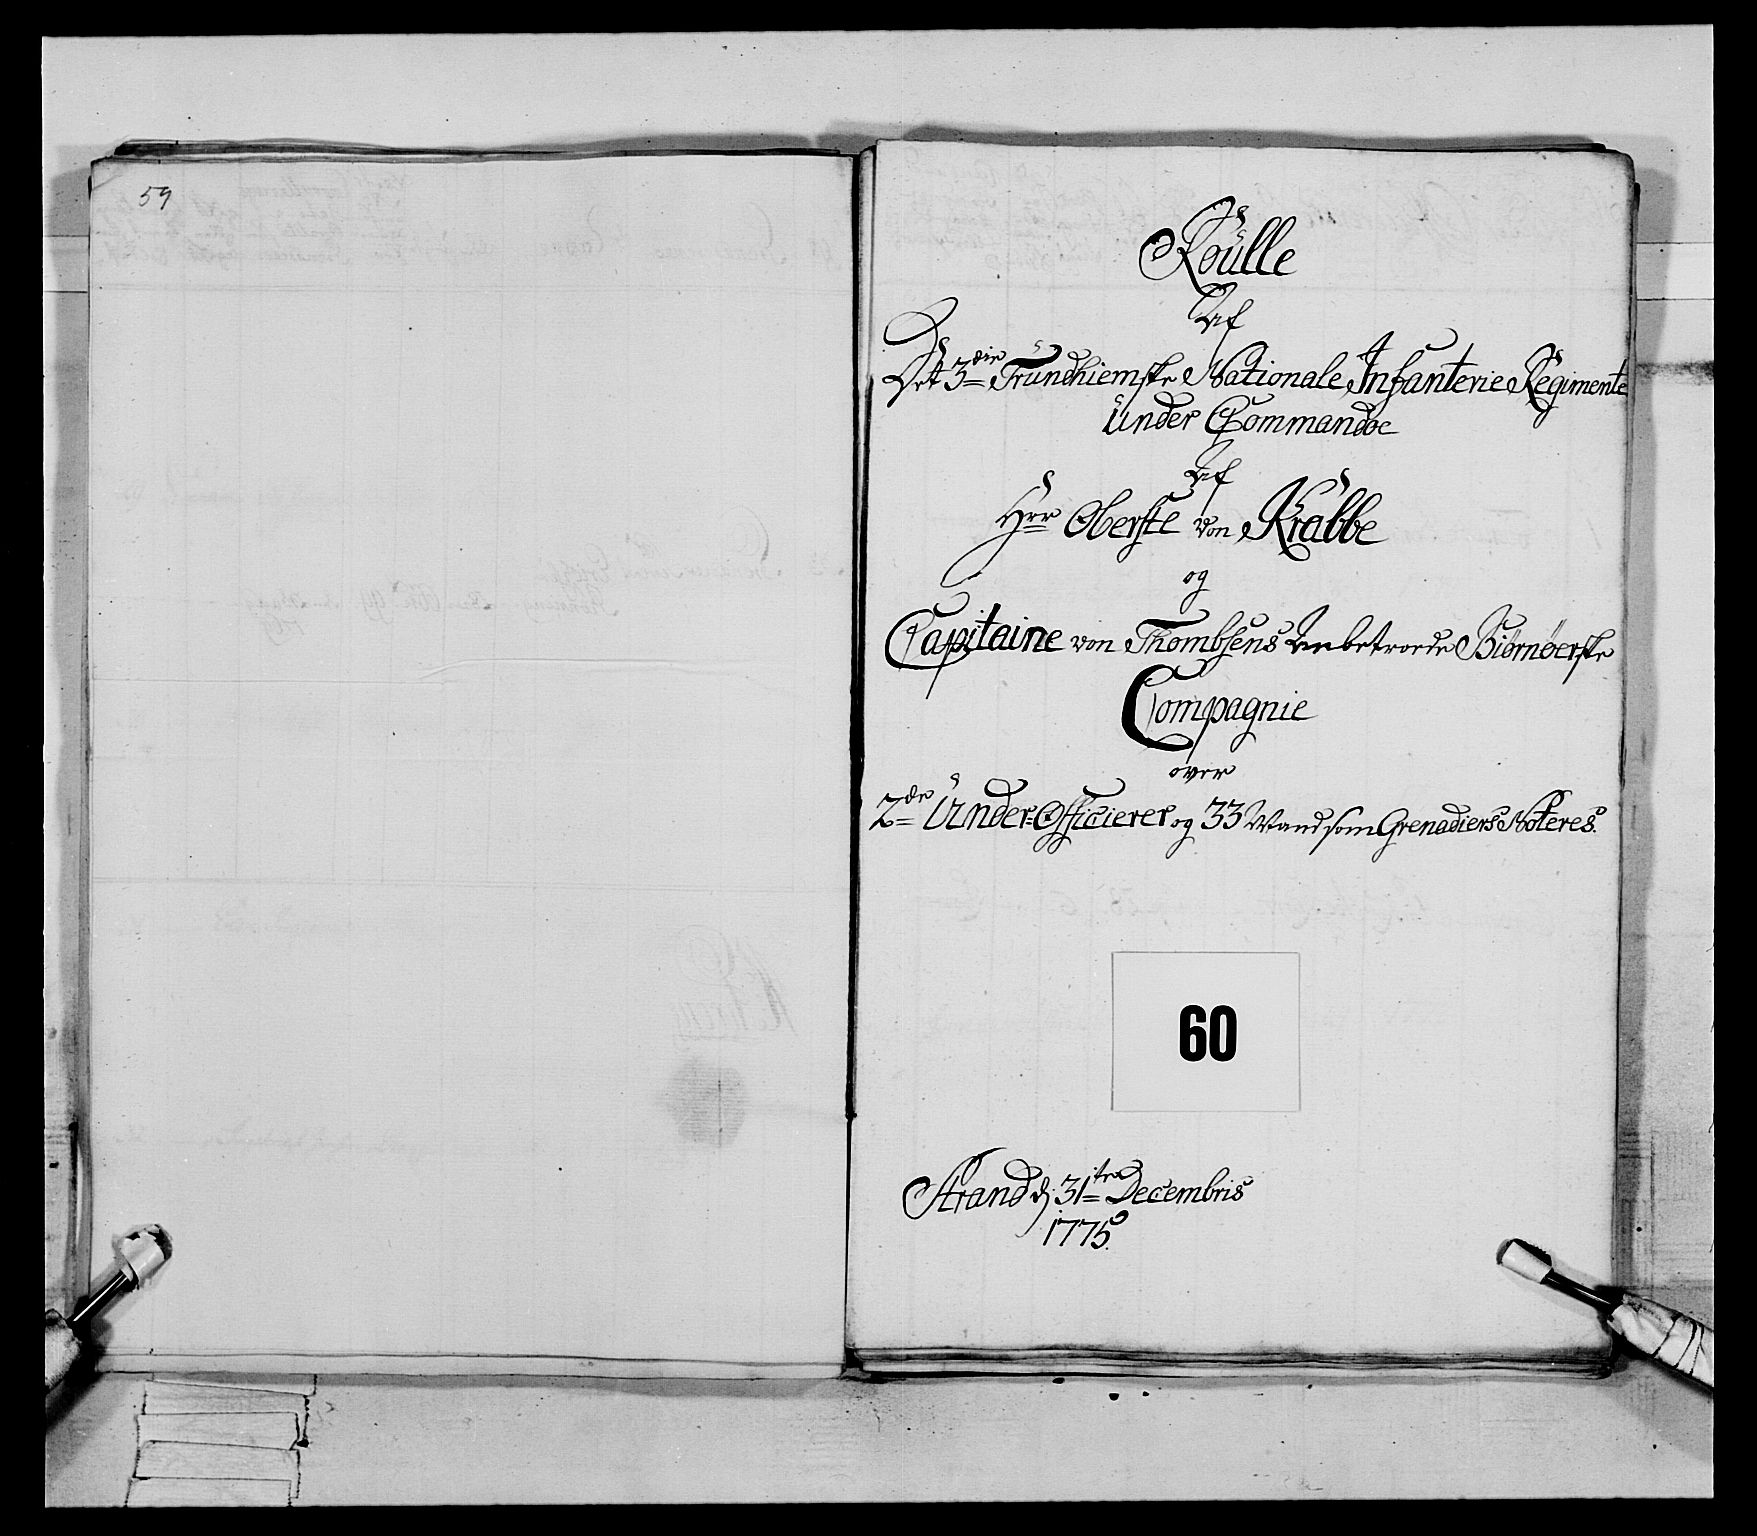 59
Roulle
Af
Det 3die Trundhiemske Nationale Infanterie Regimente
Under Commandoe
Af
Hrr Oberste von Krabbe
og
Capitaine von Thombsens Anbetroede Biørnøerske
Compagnie
over
2de Under-Officierer og 33 Mand som Grenadiers Noteres.
60
Strand d. 31te Decembris
1775.